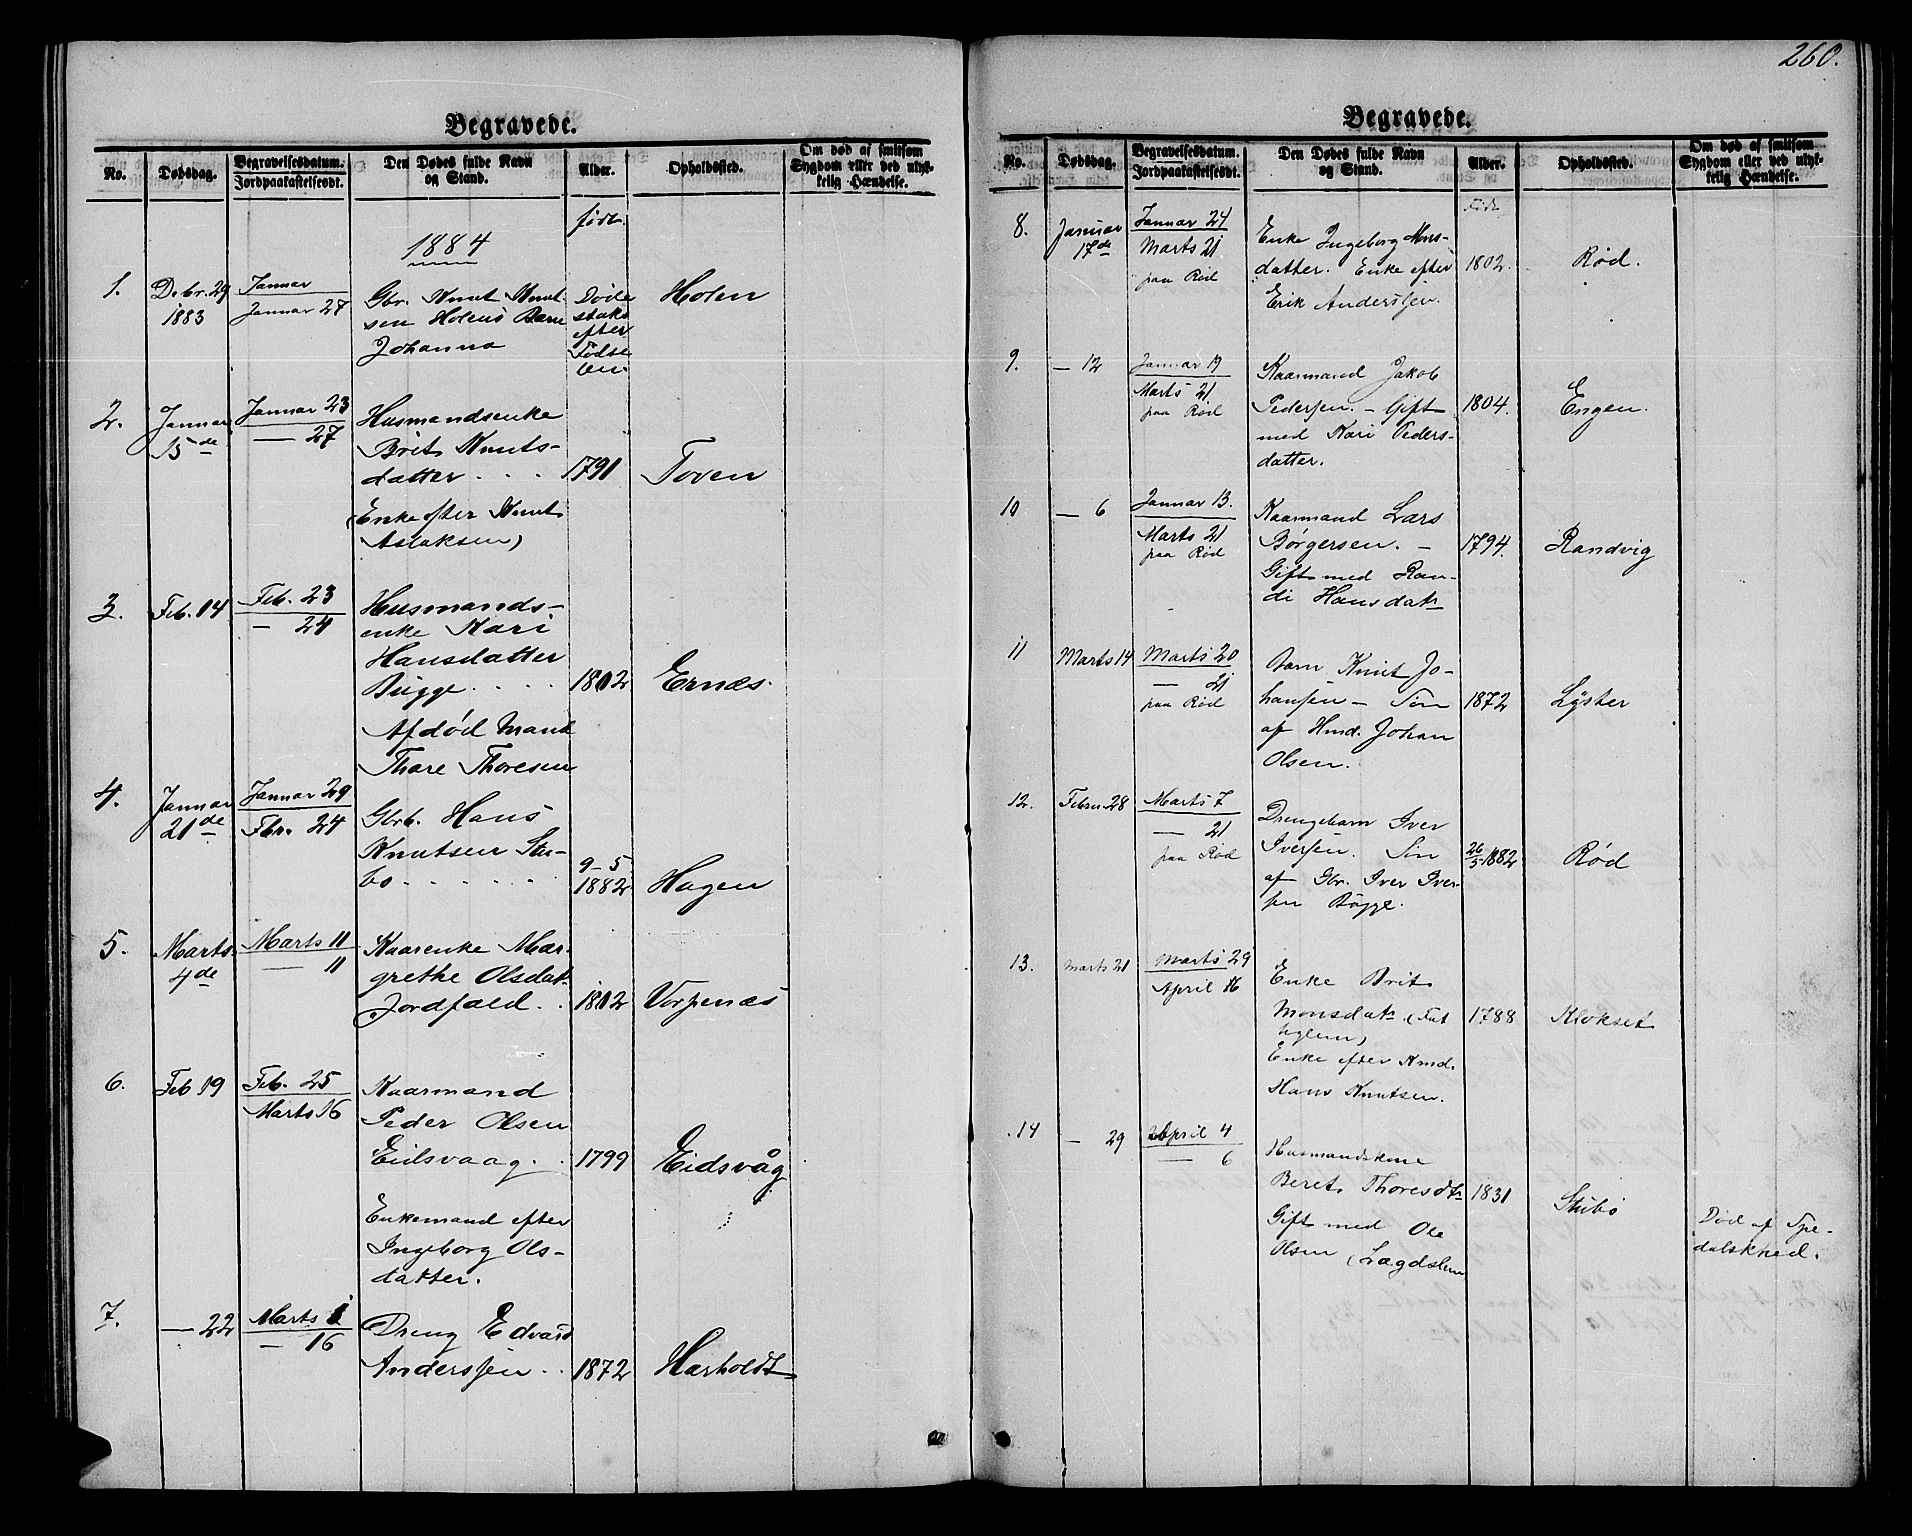 260.
Begravede.
No.
Dødsdag.
Begravelsesdatum.
Jordpaakastelsesdt.
Den Dødes fulde Navn
og Stand.
Alder.
Opholdssted.
Om død af smitsom
Sygdom eller ved ulyk-
kelig Hændelse.
født
1884
1.
Debr. 29
1883
Januar
Januar 27
Gbr. Knut Knut-
sen Holens Barn
Johanna
Døde
straks
efter
Fødse
len.
Holen
2.
Januar
15de
Januar 23
— 27
Husmandsenke
Brit Knuts-
datter . . .
(Enke efter Knut
Aslaksen)
1791
Toven
3.
Feb. 14
Feb. 23
— 24
Husmands-
enke Kari
Hansdatter
Bugge . . . .
Afdød Mand
Thore Thoresen
1802
Ernæs.
4.
Januar
21de
Januar 29
Fbr. 24
Gbrb. Hans
Knutsen Stu-
bo . . . . . .
9-5
1882
Hagen
5.
Marts
4de
Marts 11
— 11
Kaarenke Mar-
grethe Olsdat.
Jordfald .
1802
Vorpenæs
6.
Feb 19
Feb. 25
Marts 16
Kaarmand
Peder Olsen
Eidsvaag . .
Enkemand efter
Ingeborg Ols-
datter.
1799
Eidsvåg
7.
— 22
Marts 1
— 16
Dreng Edvard
Anderssen . .
1872
Harholdt
Begravede.
No.
Dødsdag.
Begravelsesdatum.
Jordpaakastelsesdt.
Den Dødes fulde Navn
og Stand.
Alder.
Opholdssted.
Om død af smitsom
Sygdom eller ved ulyk-
kelig Hændelse.
Født
8.
Januar
17de
Januar 24
Marts 21
paa Rød
Enke Ingeborg Mons-
datter. Enke efter
Erik Anderssen.
1802.
Rød.
9.
— 12
Januar 19
Marts 21
paa Rød
Kaarmand Jakob
Pedersen. — Gift
med Kari Peders-
datter.
1804.
Engen.
10
— 6
Januar 13.
Marts 21
paa Rød
Kaarmand Lars
Børgersen. —
Gift med Ran-
di Hansdatr
1794.
Randvig
11
Marts 14
Marts 20
— 21
paa Rød
Barn Knut Jo-
hansen — Søn
af Hmd. Johan
Olsen.
1872
Lyster
12.
Febru 28
Marts 7
— 21
paa Rød
Drengebarn Iver
Iversen. Søn
af Gbr. Iver Iver-
sen Bugge.
26/5 1882
Rød
13.
Marts 21
Marts 29
April 16
Enke Brit
Monsdatr (Fat
tiglem)
Enke efter Hmd.
Hans Knutsen.
1788
Klokset
14
— 29
April 4
— 6
Husmandskone
Beret Thoresdtr
Gift med Ole
Olsen (Lægdslem
1831
Stubø
Død af Spe-
dalskhed.